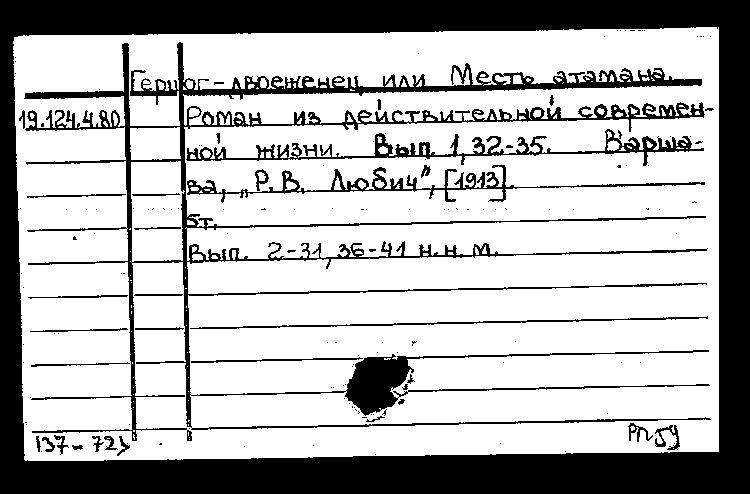 Герцог-двоеженец или Месть атамана.
19.124.4.80 Роман из действительной современ-
ной жизни. Вып. 1, 32-35. Варша-
ва, „Р.В. Любич", [1913].
5т.
Вып. 2-31, 36-41 н.н.м.
137-72